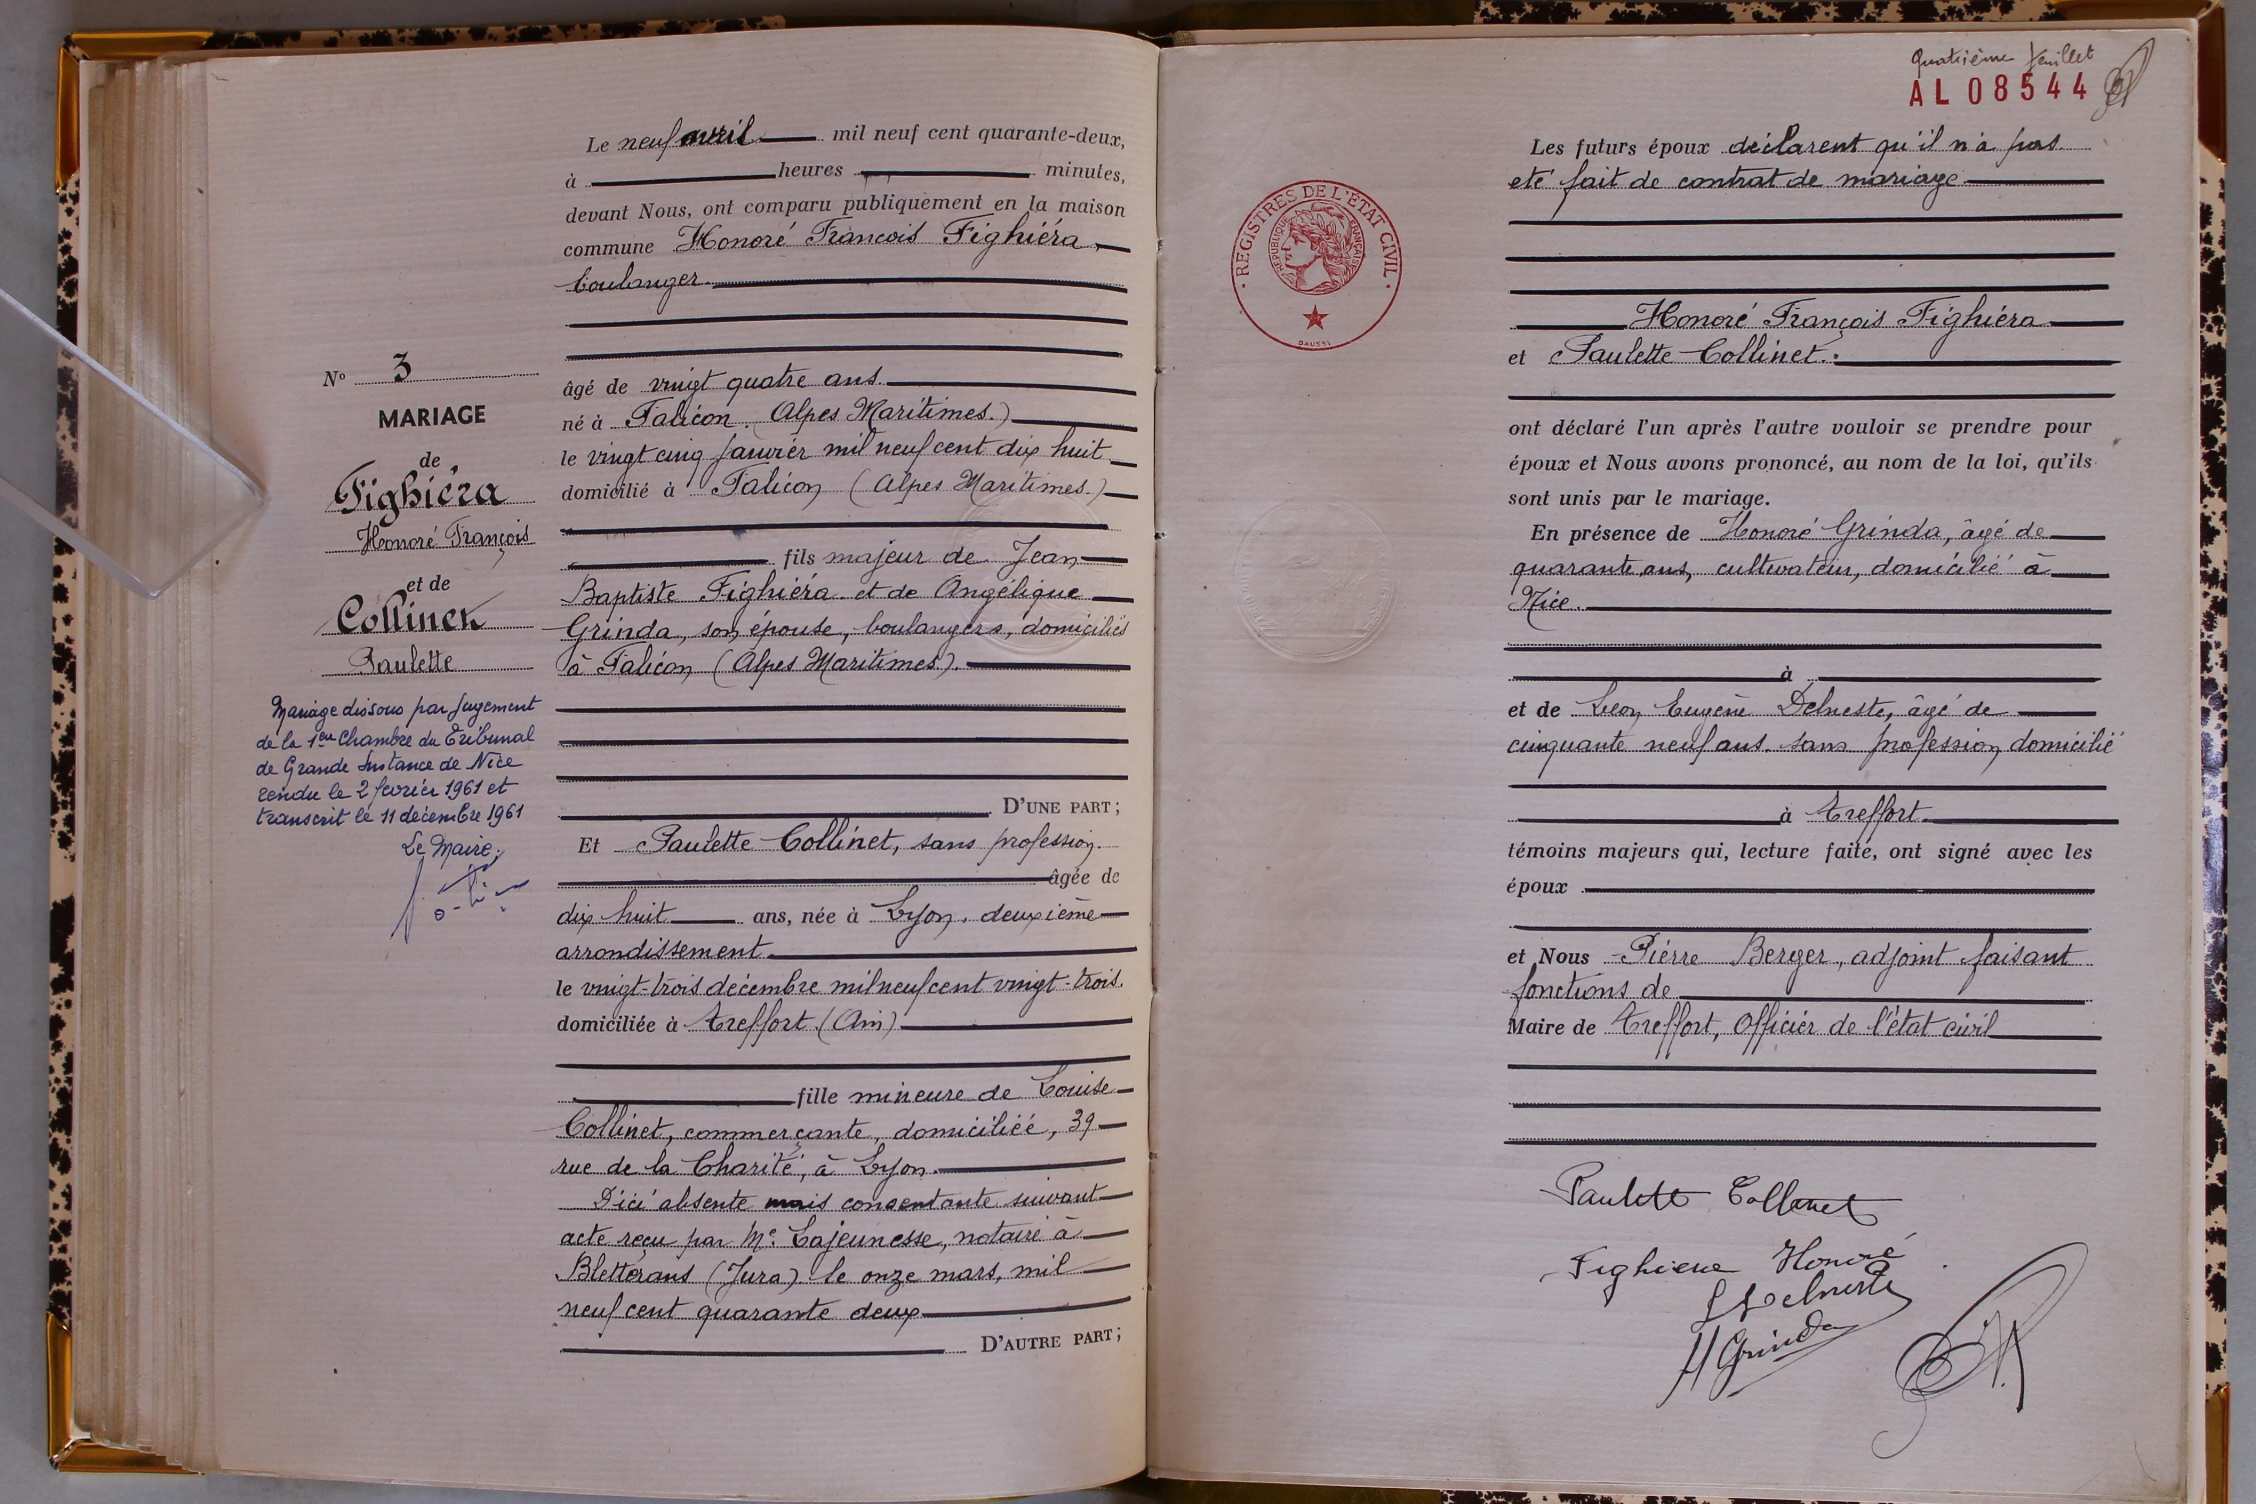 N° 3
MARIAGE
de
Fighiéra
Honoré François
et de
Collinet
Paulette
Mariage dissous par jugement
de la 1ère Chambre du Tribunal
de Grande Instance de Nice
rendu le 2 février 1961 et
transcrit le 11 décembre 1961
Le Maire.
Le neuf avril mil neuf cent quarante-deux,
à heures minutes,
devant Nous, ont comparu publiquement en la maison
commune Honoré François Fighiéra,
boulanger.
âgé de vingt quatre ans
né à Falicon (Alpes Maritimes.)
le vingt cinq janvier mil neuf cent dix huit
domicilié à Falicon (Alpes Maritimes.)
fils majeur de Jean
Baptiste Fighiéra et de Angélique
Grinda, son épouse, boulangers, domiciliés
à Falicon (Alpes Maritimes).
D'UNE PART;
Et Paulette Collinet, sans profession.
âgée de
dix huit ans, née à Lyon, deuxième
arrondissement
le vingt-trois décembre mil neuf cent vingt-trois.
domiciliée à Treffort (Ain)
fille mineure de Louise
Collinet, commerçante, domiciliée, 39
rue de la Charité, à Lyon.
D'ici absente mais consentante suivant
acte reçu par Me Lajeunesse, notaire à
Bletterans (Jura) le onze mars, mil
neuf cent quarante deux
D'AUTRE PART;
Quatrième feuillet
AL 08544
REGISTRES DE L'ÉTAT CIVIL
RÉPUBLIQUE FRANÇAISE
DAUSSY
Les futurs époux déclarent qu'il n'a pas
eté fait de contrat de mariage
Honoré François Fighiéra
et Paulette Collinet.
ont déclaré l'un après l'autre vouloir se prendre pour
époux et Nous avons prononcé, au nom de la loi, qu'ils
sont unis par le mariage.
En présence de Honoré Grinda, âgé de
quarante ans, cultivateur, domicilié à
Nice.
à
et de Léon Eugène Delneste, âgé de
cinquante neuf ans. sans profession domicilié
à Treffort.
témoins majeurs qui, lecture faite, ont signé avec les
époux
et Nous Pierre Berger, adjoint faisant
fonctions de
Maire de Treffort, Officier de l'état civil
Paulette Collinet
Fighiera Honoré
L Delneste
H Grinda